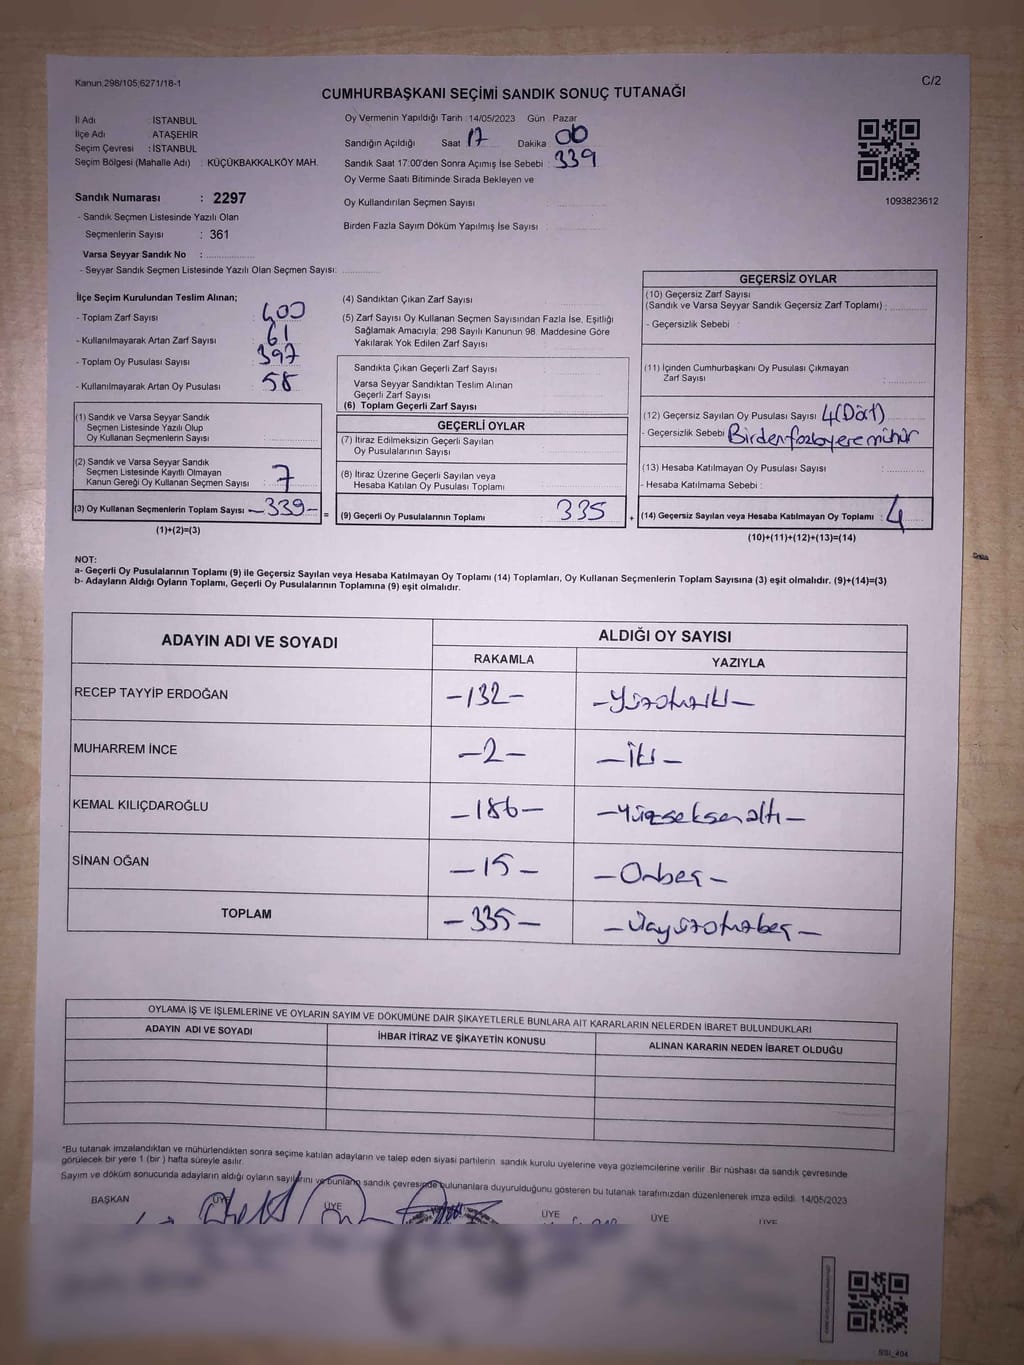 Kanun;298/105;6271/18-1
C/2
CUMHURBAŞKANI SEÇİMİ SANDIK SONUÇ TUTANAĞI
İl Adı : İSTANBUL
İlçe Adı : ATAŞEHİR
Seçim Çevresi : İSTANBUL
Seçim Bölgesi (Mahalle Adı) : KÜÇÜKBAKKALKÖY MAH.
Oy Vermenin Yapıldığı Tarih : 14/05/2023 Gün : Pazar
Sandığın Açıldığı Saat 17 Dakika 00
Sandık Saat 17:00'den Sonra Açımış İse Sebebi : 339
Oy Verme Saati Bitiminde Sırada Bekleyen ve
Oy Kullandırılan Seçmen Sayısı
Birden Fazla Sayım Döküm Yapılmış İse Sayısı :
1093823612
Sandık Numarası : 2297
- Sandık Seçmen Listesinde Yazılı Olan
Seçmenlerin Sayısı : 361
Varsa Seyyar Sandık No :
- Seyyar Sandık Seçmen Listesinde Yazılı Olan Seçmen Sayısı:
İlçe Seçim Kurulundan Teslim Alınan;
- Toplam Zarf Sayısı : 400
- Kullanılmayarak Artan Zarf Sayısı : 61
- Toplam Oy Pusulası Sayısı : 397
- Kullanılmayarak Artan Oy Pusulası : 58
(1) Sandık ve Varsa Seyyar Sandık
Seçmen Listesinde Yazılı Olup
Oy Kullanan Seçmenlerin Sayısı :
(2) Sandık ve Varsa Seyyar Sandık
Seçmen Listesinde Kayıtlı Olmayan
Kanun Gereği Oy Kullanan Seçmen Sayısı : 7
(3) Oy Kullanan Seçmenlerin Toplam Sayısı : -339- =
(1)+(2)=(3)
(4) Sandıktan Çıkan Zarf Sayısı
(5) Zarf Sayısı Oy Kullanan Seçmen Sayısından Fazla İse, Eşitliği
Sağlamak Amacıyla; 298 Sayılı Kanunun 98. Maddesine Göre
Yakılarak Yok Edilen Zarf Sayısı
Sandıkta Çıkan Geçerli Zarf Sayısı
Varsa Seyyar Sandıktan Teslim Alınan
Geçerli Zarf Sayısı
(6) Toplam Geçerli Zarf Sayısı
GEÇERLİ OYLAR
(7) İtiraz Edilmeksizin Geçerli Sayılan
Oy Pusulalarının Sayısı
(8) İtiraz Üzerine Geçerli Sayılan veya
Hesaba Katılan Oy Pusulası Toplamı
(9) Geçerli Oy Pusulalarının Toplamı : 335 +
GEÇERSİZ OYLAR
(10) Geçersiz Zarf Sayısı
(Sandık ve Varsa Seyyar Sandık Geçersiz Zarf Toplamı) :
- Geçersizlik Sebebi :
(11) İçinden Cumhurbaşkanı Oy Pusulası Çıkmayan
Zarf Sayısı :
(12) Geçersiz Sayılan Oy Pusulası Sayısı : 4(Dört)
- Geçersizlik Sebebi : Birden fazla yere mühür
(13) Hesaba Katılmayan Oy Pusulası Sayısı :
- Hesaba Katılmama Sebebi :
(14) Geçersiz Sayılan veya Hesaba Katılmayan Oy Toplamı : 4
(10)+(11)+(12)+(13)=(14)
NOT:
a- Geçerli Oy Pusulalarının Toplamı (9) ile Geçersiz Sayılan veya Hesaba Katılmayan Oy Toplamı (14) Toplamları, Oy Kullanan Seçmenlerin Toplam Sayısına (3) eşit olmalıdır. (9)+(14)=(3)
b- Adayların Aldığı Oyların Toplamı, Geçerli Oy Pusulalarının Toplamına (9) eşit olmalıdır.
ADAYIN ADI VE SOYADI
ALDIĞI OY SAYISI
RAKAMLA YAZIYLA
RECEP TAYYİP ERDOĞAN -132- -Yüzotuziki-
MUHARREM İNCE -2- -İki-
KEMAL KILIÇDAROĞLU -186- -Yüzseksenaltı-
SİNAN OĞAN -15- -Onbeş-
TOPLAM -335- -Üçyüzotuzbeş-
OYLAMA İŞ VE İŞLEMLERİNE VE OYLARIN SAYIM VE DÖKÜMÜNE DAİR ŞİKAYETLERLE BUNLARA AİT KARARLARIN NELERDEN İBARET BULUNDUKLARI
ADAYIN ADI VE SOYADI İHBAR İTİRAZ VE ŞİKAYETİN KONUSU ALINAN KARARIN NEDEN İBARET OLDUĞU
*Bu tutanak imzalandıktan ve mühürlendikten sonra seçime katılan adayların ve talep eden siyasi partilerin sandık kurulu üyelerine veya gözlemcilerine verilir. Bir nüshası da sandık çevresinde
görülecek bir yere 1 (bir ) hafta süreyle asılır.
Sayım ve döküm sonucunda adayların aldığı oyların sayılarını ve bunların sandık çevresinde bulunanlara duyurulduğunu gösteren bu tutanak tarafımızdan düzenlenerek imza edildi. 14/05/2023
BAŞKAN ÜYE ÜYE ÜYE ÜYE ÜYE